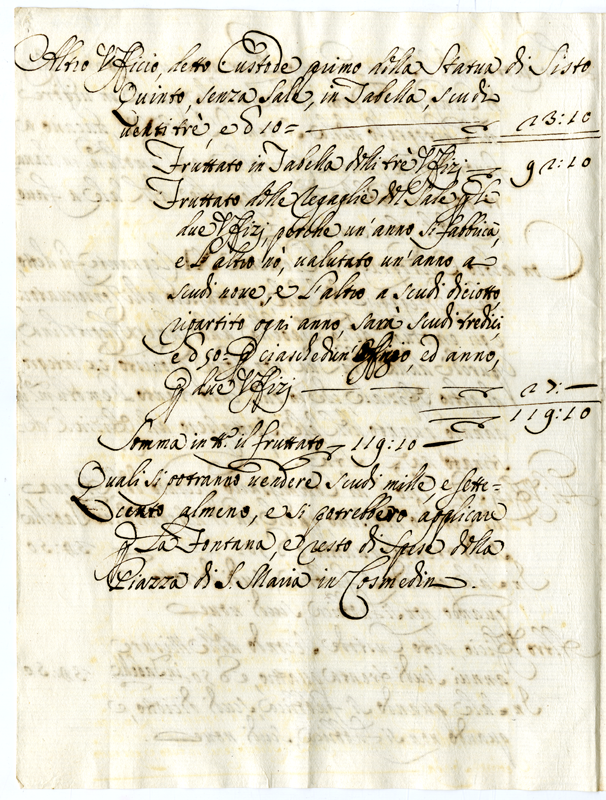 Altro Uffitio, detto Custode primo della Statua di Sisto
Quinto, senza Sale, in Tabella, scudi
venti trè, e d 10= 23:10
Fruttato in Tabella delli trè Uffizj 92:10
Fruttato delle Regaglie del Sale p li
due Uffizj, perche un'anno si fabbrica,
e l'altro nò, valutato un'anno a
scudi nove, e l'altro a scudi diciotto,
ripartito ogni anno, sarà scudi tredici,
e d 50= p ciaschedun' Offizio, ed anno,
p due Uffizj 27:—
119:10
Somma in tt.o il fruttato 119:10 —
Quali si potranno vendere scudi mille, e sette-
cento almeno, e si potrebbero applicare
p La Fontana, e resto di Spese della
Piazza di S. Maria in Cosmedin.